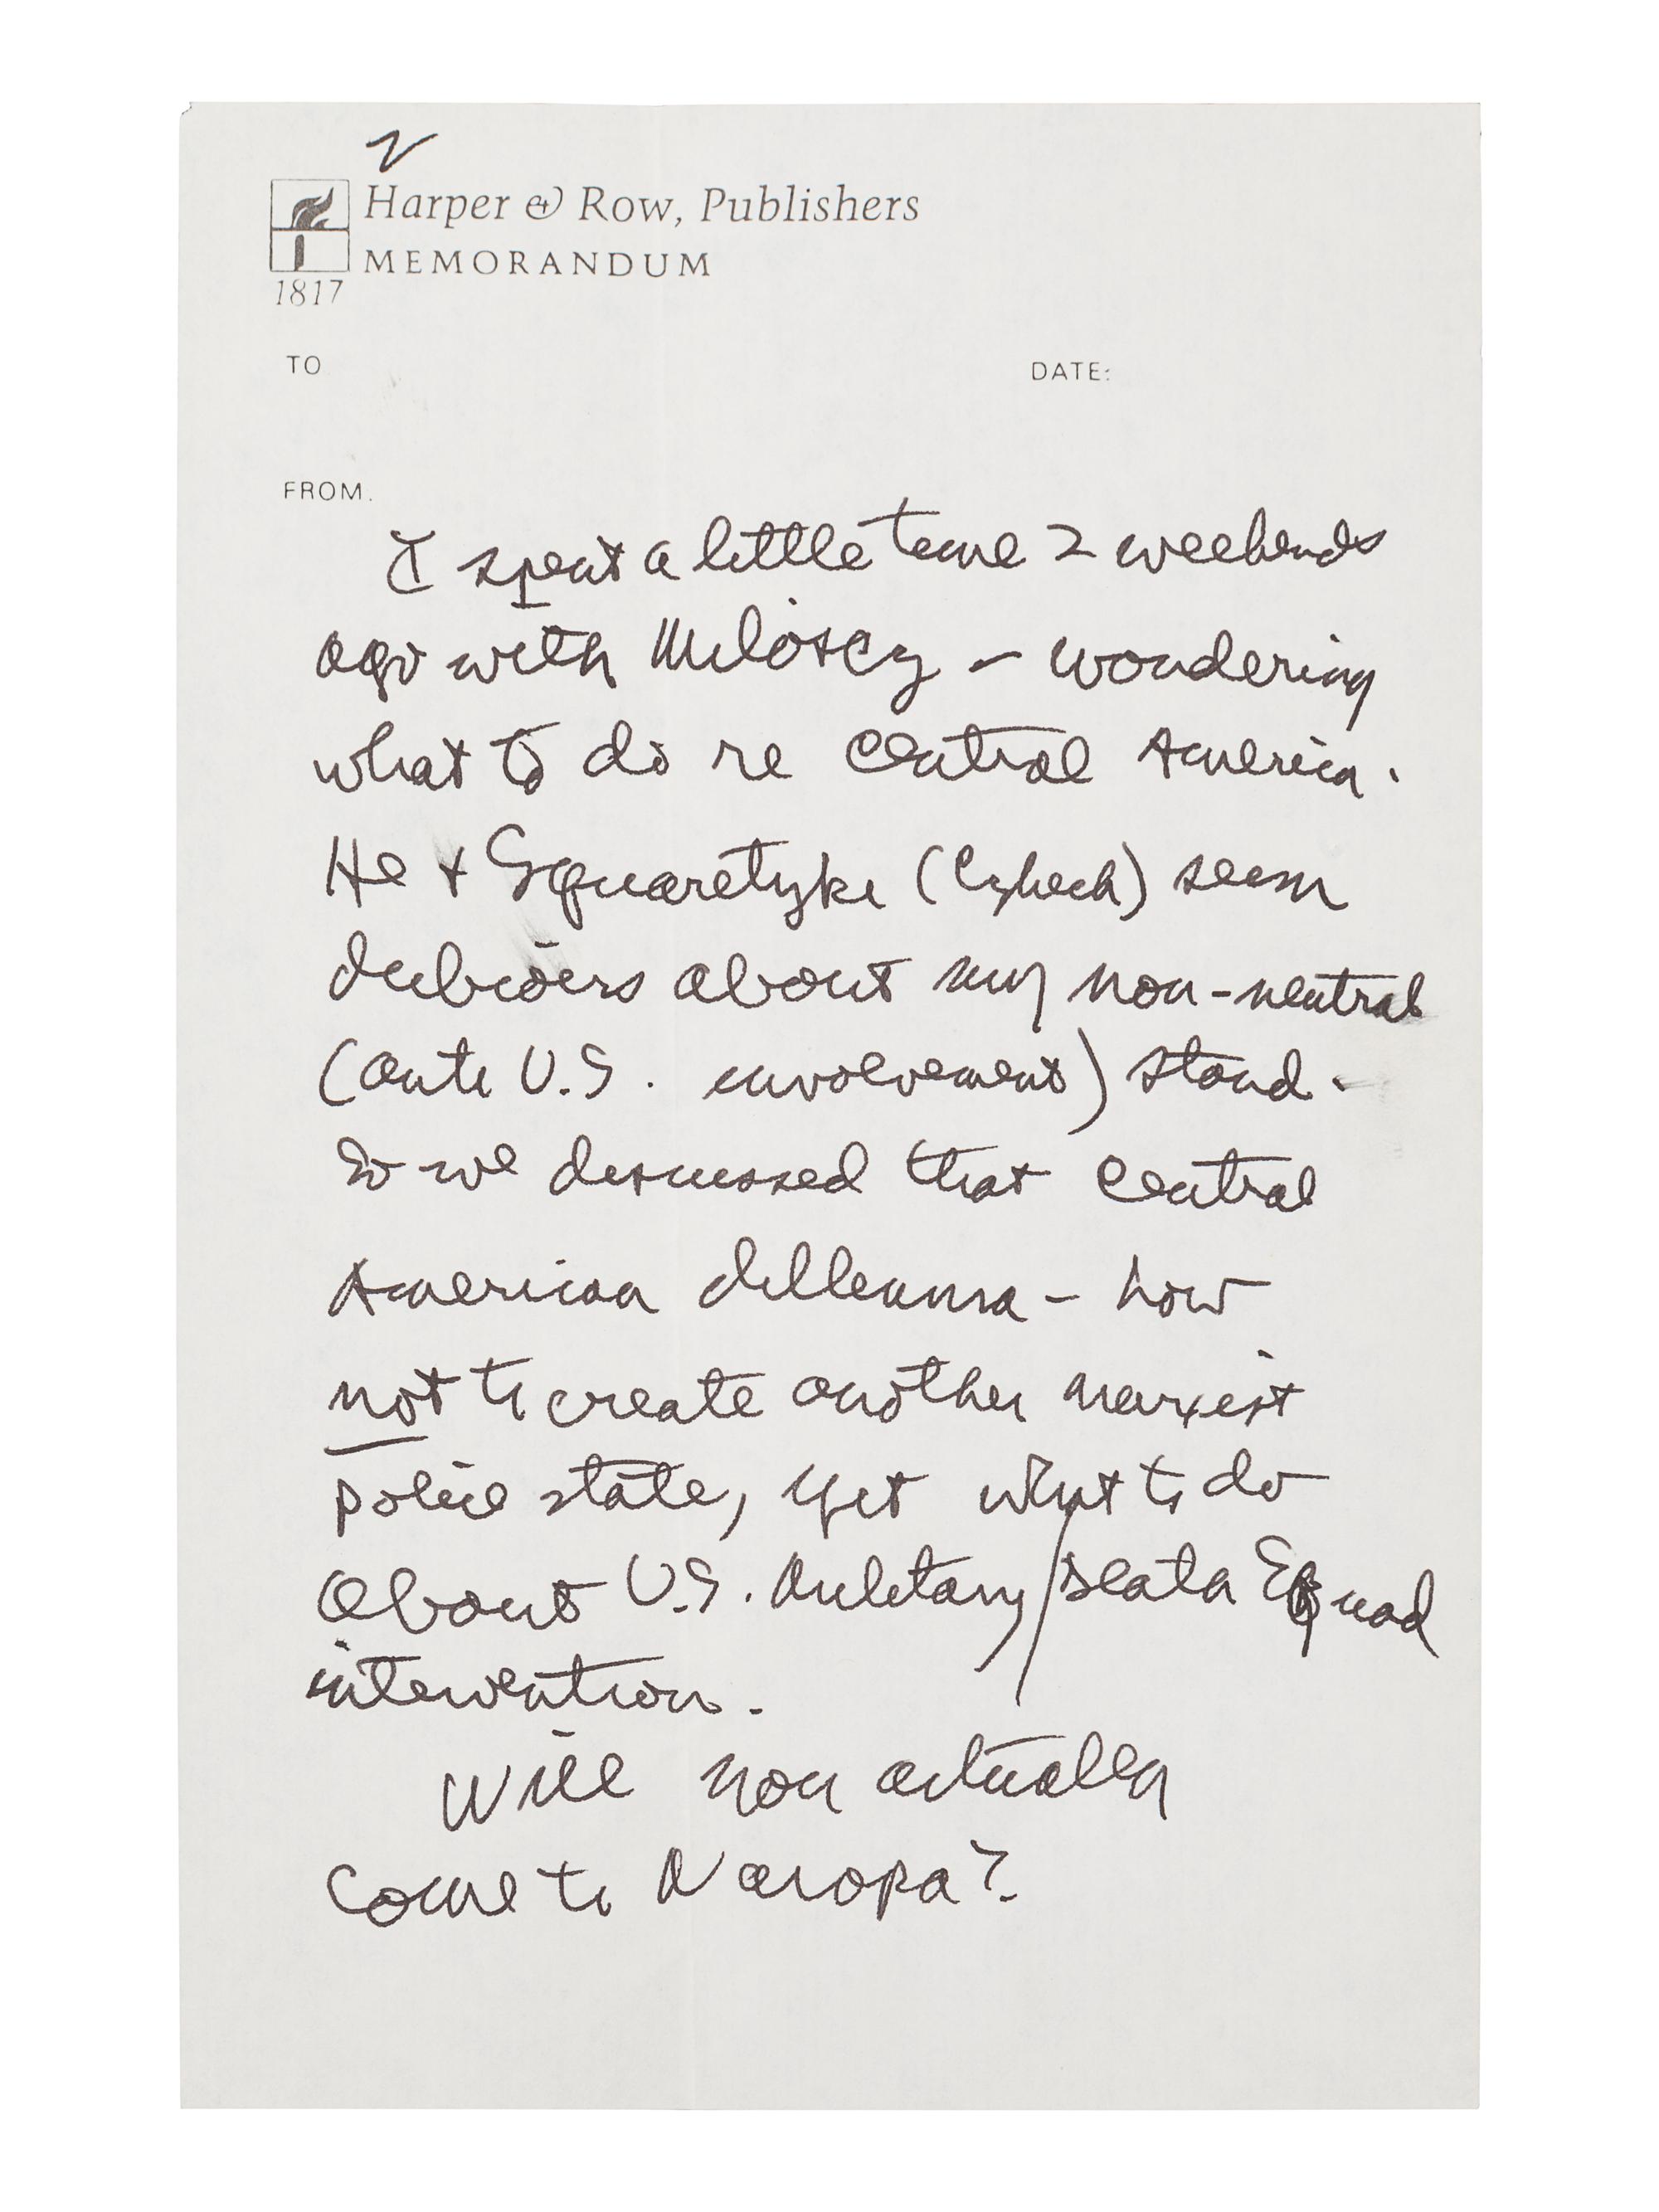 2
Harper & Row, Publishers
MEMORANDUM
1817
TO
DATE:
FROM.
I spent a little time 2 weekends
ago with Milóscz – wondering
what to do re Central America.
He + Squaretyke (Czhech) seem
dubious about my non-neutral
(anti U.S. involvement) stand.
So we discussed that Central
American dillemma – how
not to create another marxist
police state, yet what to do
about U.S. Military/Death Squad
intervention.
Will you actually
come to Naropa?